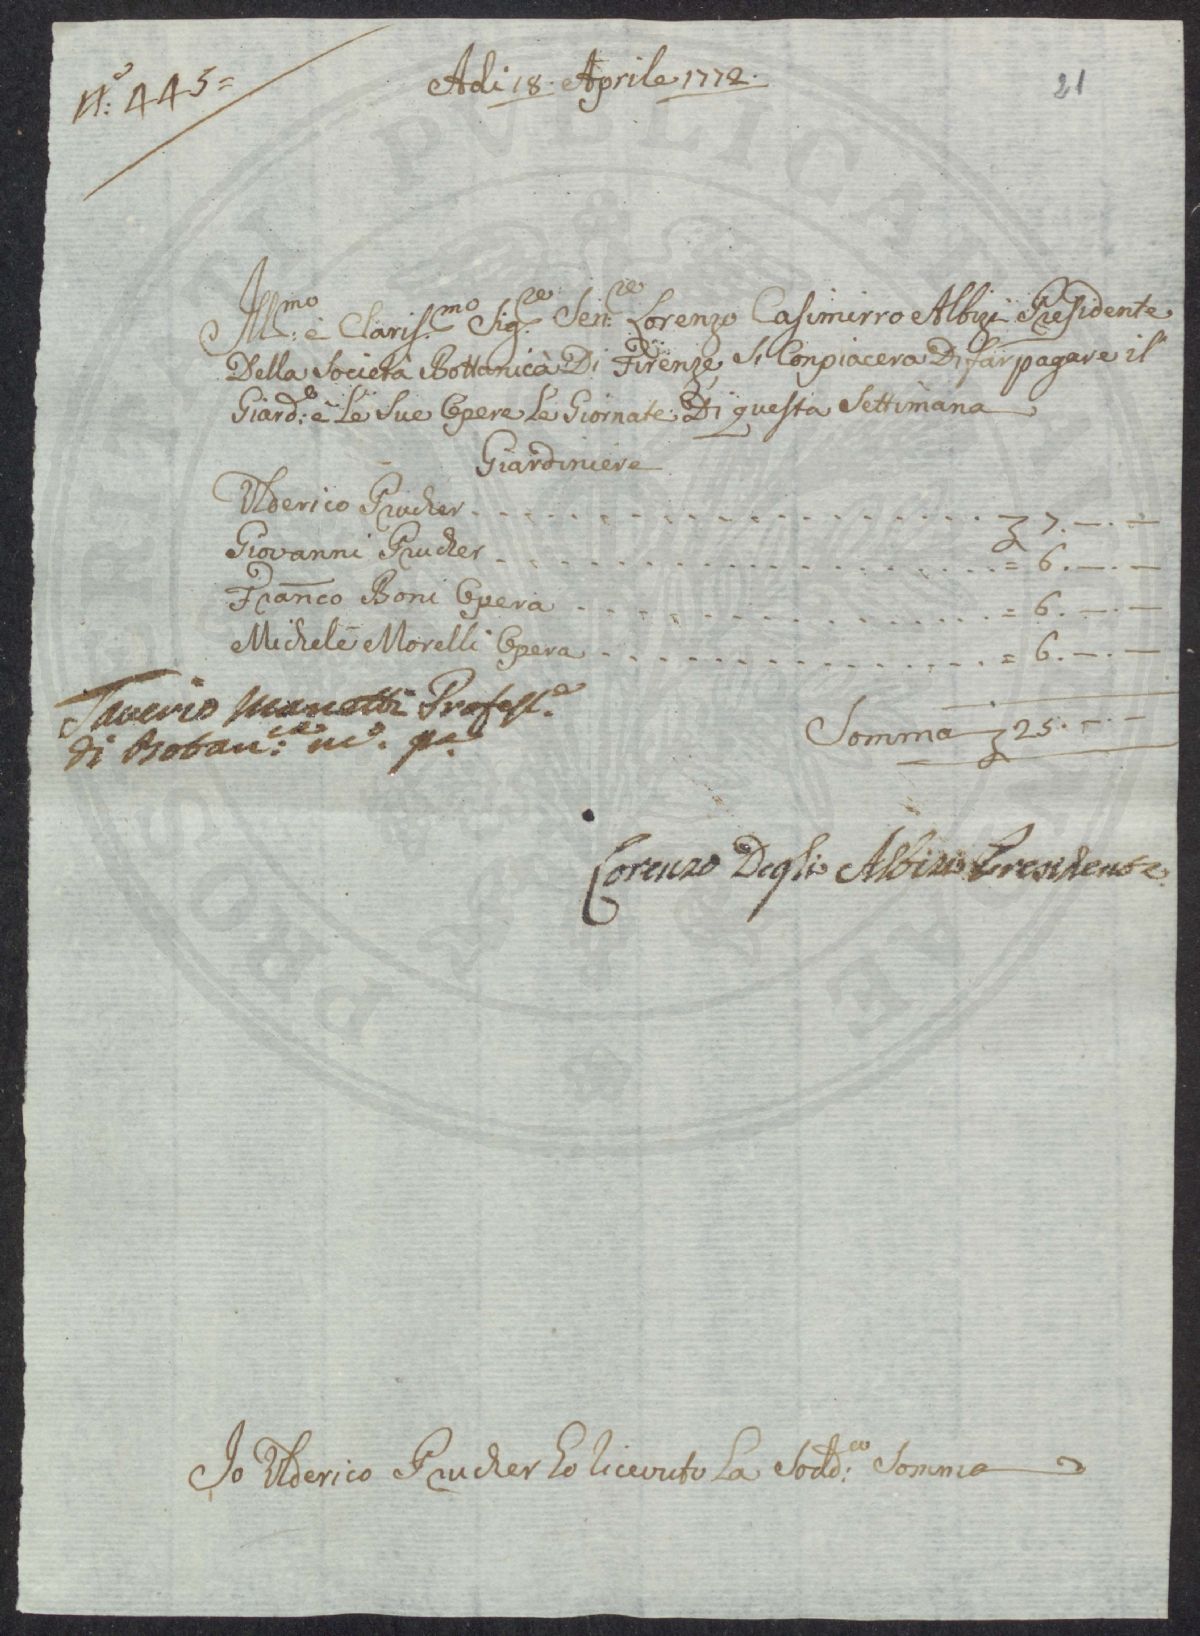 N.o 445=
Adi 18. Aprile 1772.
21
Ill.mo: è Claris.mo Sig.re Sen:re Lorenzo Casimirro Albizi Presidente
Della Società Bottanicà Di Firenze Si Conpiacera Di far pagare il
Giard:e è Le Sue Opere Le Giornate Di questa Settimana
Giardiniere
Ulderico Prucher - - - - - - - - - - - - - - - - ʒ 7. —. —
Giovanni Prucher - - - - - - - - - - - - - - - - = 6. —. —
Franco Boni Opera - - - - - - - - - - - - - - = 6. —. —
Michele Morelli Opera - - - - - - - - - - - - - = 6. —. —
Saverio Manetti Profess.e
di Botan:ca m.o p.a
Somma ʒ 25. —. —
Lorenzo Degli Albizi Presidente
Io Ulderico Prucher ho riceuuto La Sodd:ta Somma
PROSPERITATI PVBLICAE AVGENDAE